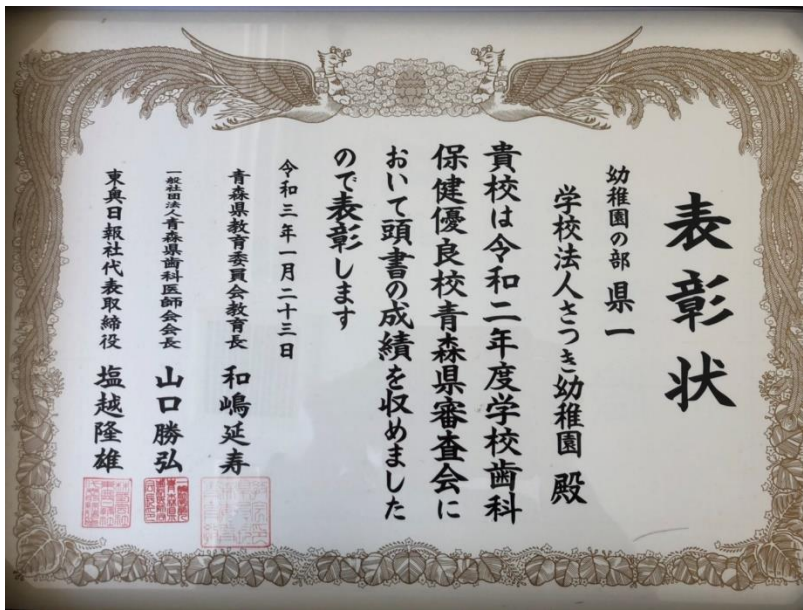 表彰状
幼稚園の部 県一
学校法人さつき幼稚園 殿
貴校は令和二年度学校歯科
保健優良校青森県審査会に
おいて頭書の成績を収めました
ので表彰します
令和三年一月二十三日
青森県教育委員会教育長 和嶋延寿
一般社団法人青森県歯科医師会会長 山口勝弘
東奥日報社代表取締役 塩越隆雄